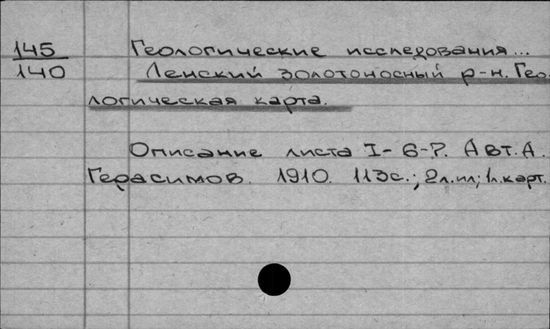 145
140
Геологические исследования...
Ленский золотоносный р-н. Гео
логическая карта.
Описание листа I-6-7. Авт. А.
Герасимов. 1910. 113с.; 2л.ил; 1л.карт.